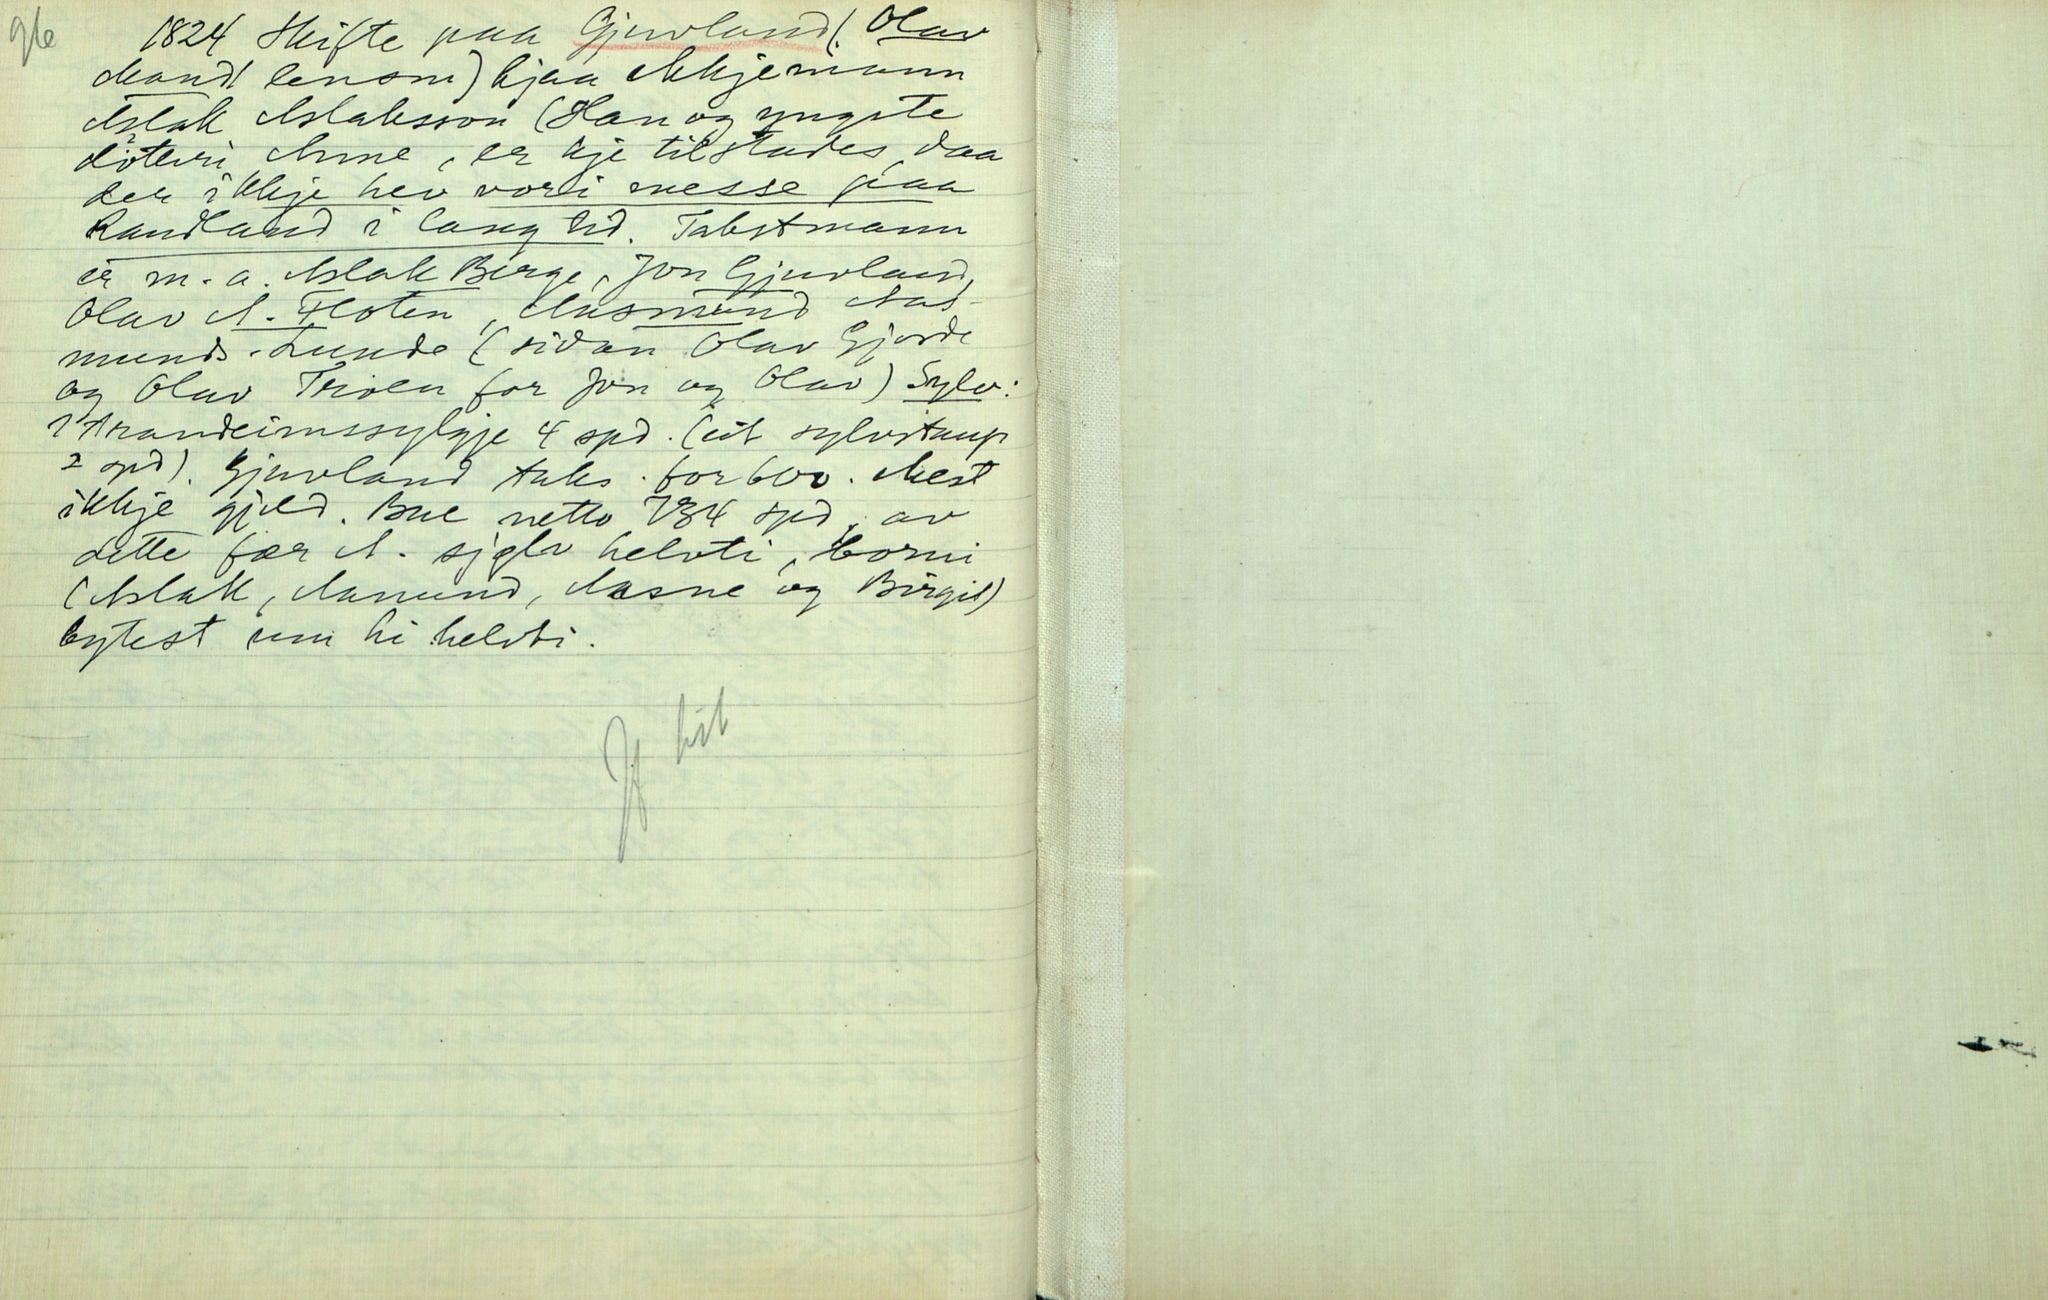 96
1824 Skifte paa Gjuvland (Olav
Aamdl lensm) hjaa Ekkjemann
Aslak Aslaksson (Han og yngste
doteri Anne, er kje tilstades, daa
der ikkje hev vori messe paa
Rauland i lang tid. Takstmann
er m. a. Aslak Berge, Jon Gjuvland,
Olav A. Floten, Aasmund Aas-
munds. Lunde (sidan Olav Gjorde
og Olav Troen for Jon og Olav) Sylv:
1 trondeimssylgje 4 spd. (eit sylvstaup
2 spd). Gjuvland taks. for 600. Mest
ikkje gjeld. Bue netto 734 spd, av
dette fær A. sjølv helvti, borni
(Aslak, Aamund, Aasne og Birgit)
bytest um hi helvti.
hit